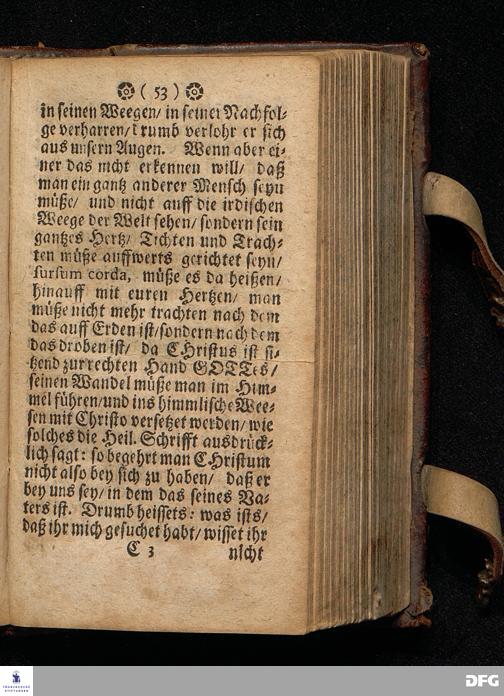 ( 53 )
in seinen Weegen/ in seiner Nachfol-
ge verharren/ drumb verlohr er sich
aus unsern Augen. Wenn aber ei-
ner das nicht erkennen will/ daß
man ein gantz anderer Mensch seyn
müße/ und nicht auff die irdischen
Weege der Welt sehen/ sondern sein
gantzes Hertz/ Tichten und Trach-
ten müße auffwerts gerichtet seyn/
sursum corda, müße es da heißen/
hinauff mit euren Hertzen/ man
müße nicht mehr trachten nach dem
das auff Erden ist/ sondern nach dem
das droben ist/ da CHristus ist si-
tzend zur rechten Hand GOTTes/
seinen Wandel müße man im Him-
mel führen/ und ins himmlische Wee-
sen mit Christo versetzet werden/ wie
solches die Heil. Schrifft ausdrück-
lich sagt: so begehrt man CHristum
nicht also bey sich zu haben/ daß er
bey uns sey/ in dem das seines Va-
ters ist. Drumb heissets: was ists/
daß ihr mich gesuchet habt/ wisset ihr
C 3 nicht
FRANCKESCHE
STIFTUNGEN
DFG